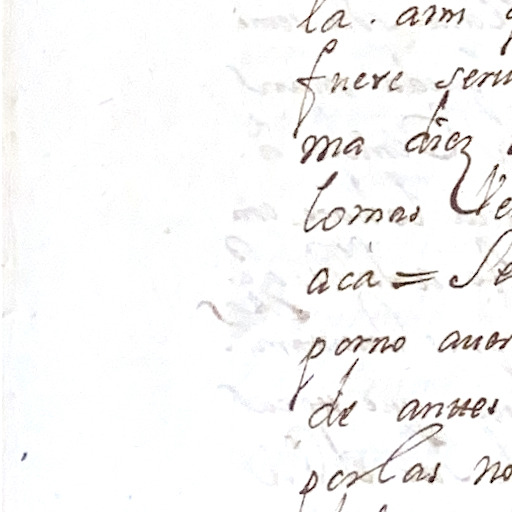 la. aim
fuere seru
ma diez
lomas Ve
aca = Se
porno auer
de antes
porlas no